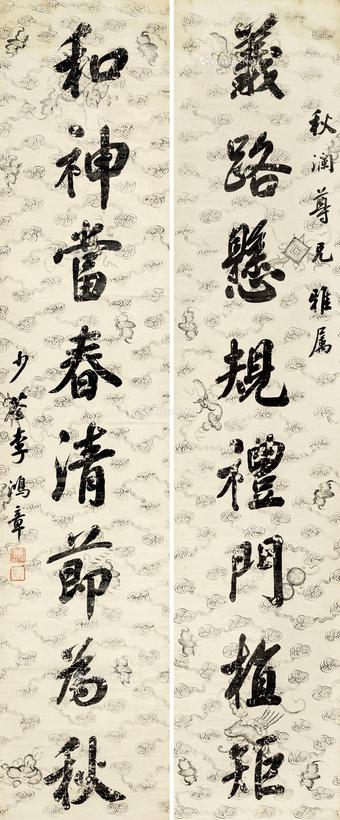 秋澜尊兄雅属
義路懸規禮門植矩
和神當春清節為秋
少荃李鴻章